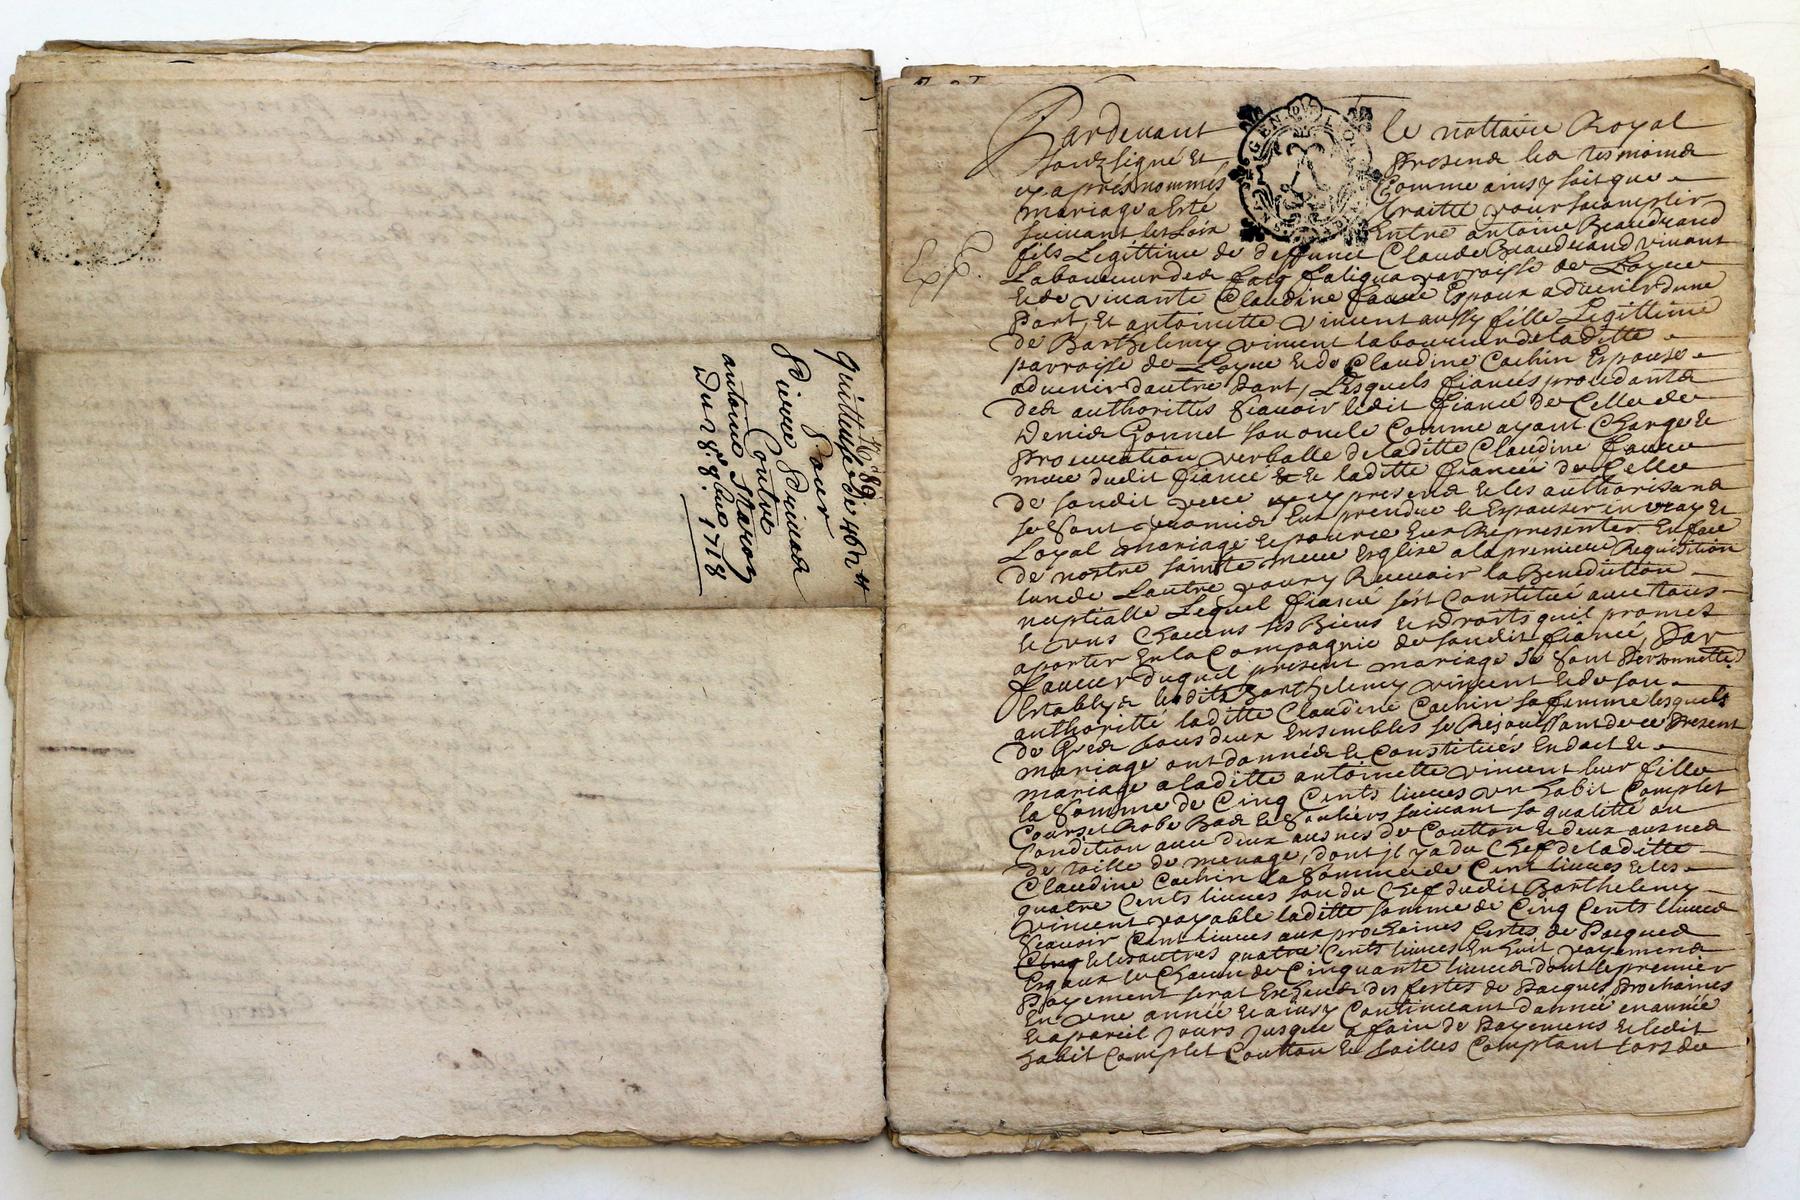 N° 89
Quittance de 46lt
Pour
Pierre
Contre
antoine
Du 28e 8bre 1718
Exp.
GEN
Pardevant le nottaire Royal
soubsigné et presend les tesmoins
cy apres nommés Comme ainsy soit que
mariage a Esté traitté pour sacomplir
suivant les Loix Entre antoine Beaudrand
fils Legittime de deffunct Claude Beaudrand vivant
Laboureur parroisse de Loyes
et de vivante Claudine faure Espoux advenir dune
Part, Et antoinette vincent aussy fille Legittime
de Barthelemy vincent laboureur de laditte
parroisse de Loyes et de Claudine Cochin Espouse
advenir dautre Part, Lesquels fiancés procedants
des authorittés scavoir ledit fiancé de Celle de
Denis Gonnet son oncle Comme ayant Charge et
Procuration verballe de laditte Claudine faure
mere dudit fiancé et laditte fiancée de Celle
de sondit pere icy present et les authorisand
se sont promis Eux prendre et Espouser en vray et
Loyal mariage et pource Eux Representer En face
de nostre sainte mere Esglise a la premiere Requisition
lun de Lautre pour y Recevoir la Benediction
nuptialle Lequel fiancé sest Constitué avec tous
et uns Chacuns ses Biens et droits quil promet
aporter En la Compagnie de sondit fiancé, Par
faveur duquel present mariage Se sont Personnelle
Establys ledit Barthelemy vincent et de son
authoritté laditte Claudine Cochin sa femme lesquels
de Gré tous deux Ensembles se Rejouissant de ce Present
mariage ont donnés et Constitués En dot et
mariage a laditte antoinette vincent leur fille
la Somme de Cinq Cents livres un habit Complet
Corset Robe Bas et souliers suivant sa qualitté ou
Condition avec deux ausnes de Coutton et deux ausnes
de toille de menage, dont il y a du Chef de laditte
Claudine Cochin la Somme de Cent livres et les
quatre Cents livres son du Chef dudit Barthelemy
vincent payable laditte somme de Cinq Cents livres
scavoir Cent livres aux prochaines festes de Pacques
Cinq et les autres quatre Cents livres En huit payements
Esgaux de Chacun de Cinquante livres dont le premier
Payement serat Escheut des festes de Pacques Prochaines
En une année et ainsy Continuant dannée en année
et a pareil Jours Jusque a fain de Payemens et ledit
habit Complet Coutton et toilles Comptant lors du